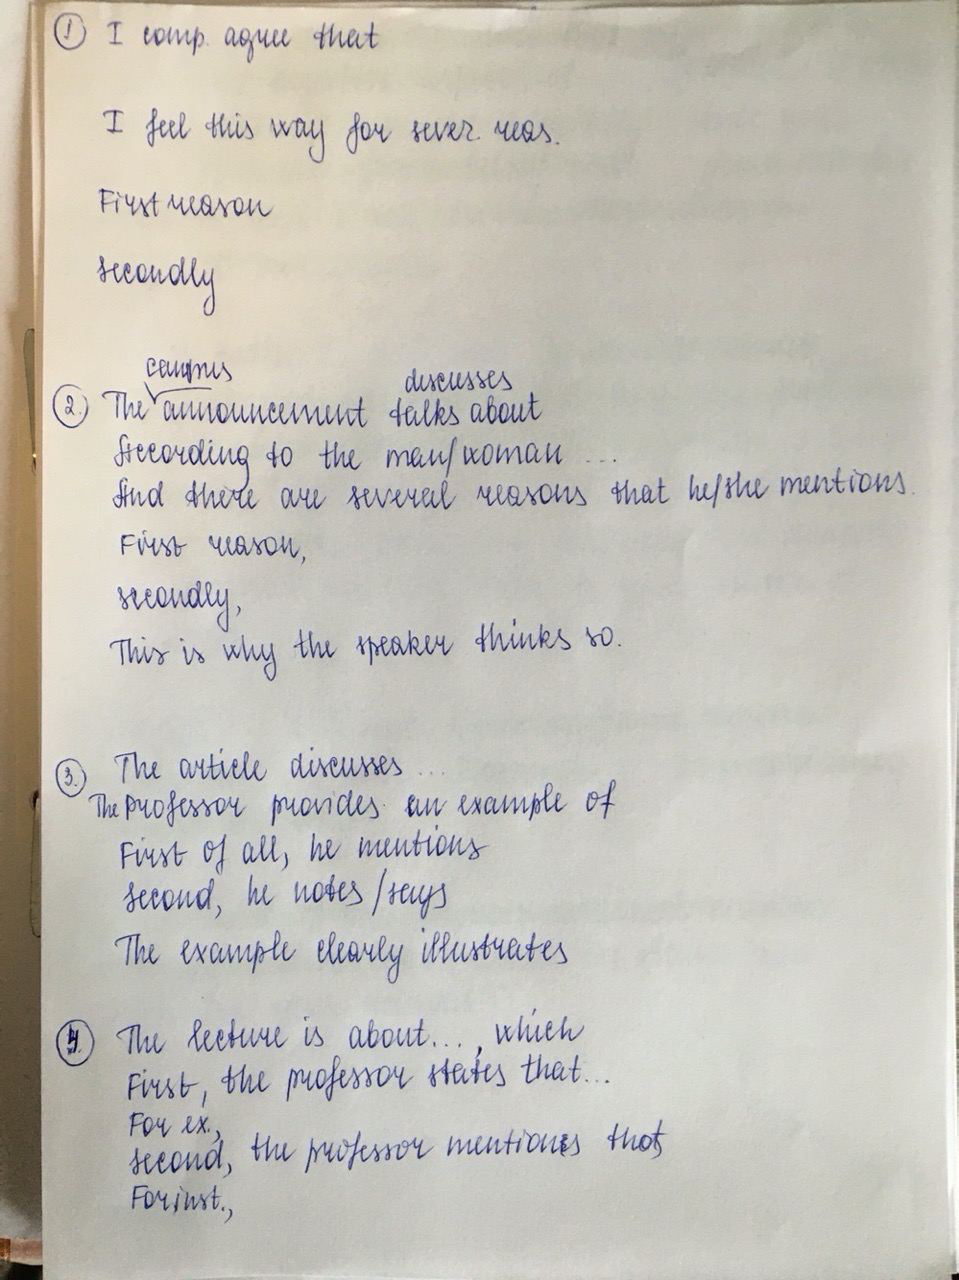 ① I comp. agree that
I feel this way for sever. reas.
First reason
secondly
campus discusses
②. The announcement talks about
According to the man/woman ...
And there are several reasons that he/she mentions.
First reason,
secondly,
This is why the speaker thinks so.
③. The article discusses ...
The professor provides an example of
First of all, he mentions
second, he notes /says
The example clearly illustrates
④. The lecture is about..., which
First, the professor states that...
For ex.,
second, the professor mentiones that,
For inst.,